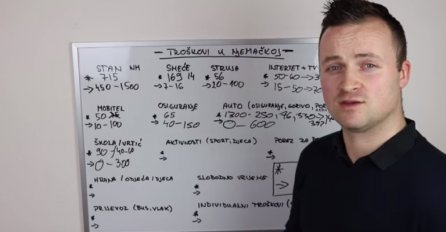 TROŠKOVI U NJEMAČKOJ
STAN NM
* 715
→ 450-1500
SMEĆE
* 169 14
→ 7-16
STRUJA
* 56
→ 20-100
INTERTET + TV
* 50-60
→ 15-50
MOBITEL
* 50
→ 10-100
OSIGURANJE
* 65
→ 40-150
AUTO (OSIGURANJE, GORIVO,
* 1300-250
→ 0-600
ŠKOLA/VRTIĆ
* 90
→ 0-300
AKTIVNOSTI (SPORT, DJECA)
*
→
POREZ ZA
*
→
HRANA/ODJEĆA/DJECA
*
→
SLOBODNO VRIJEME
*
→
PRIJEVOZ (BUS, VLAK)
*
INDIVIDUALNI TROŠKOVI
*
→